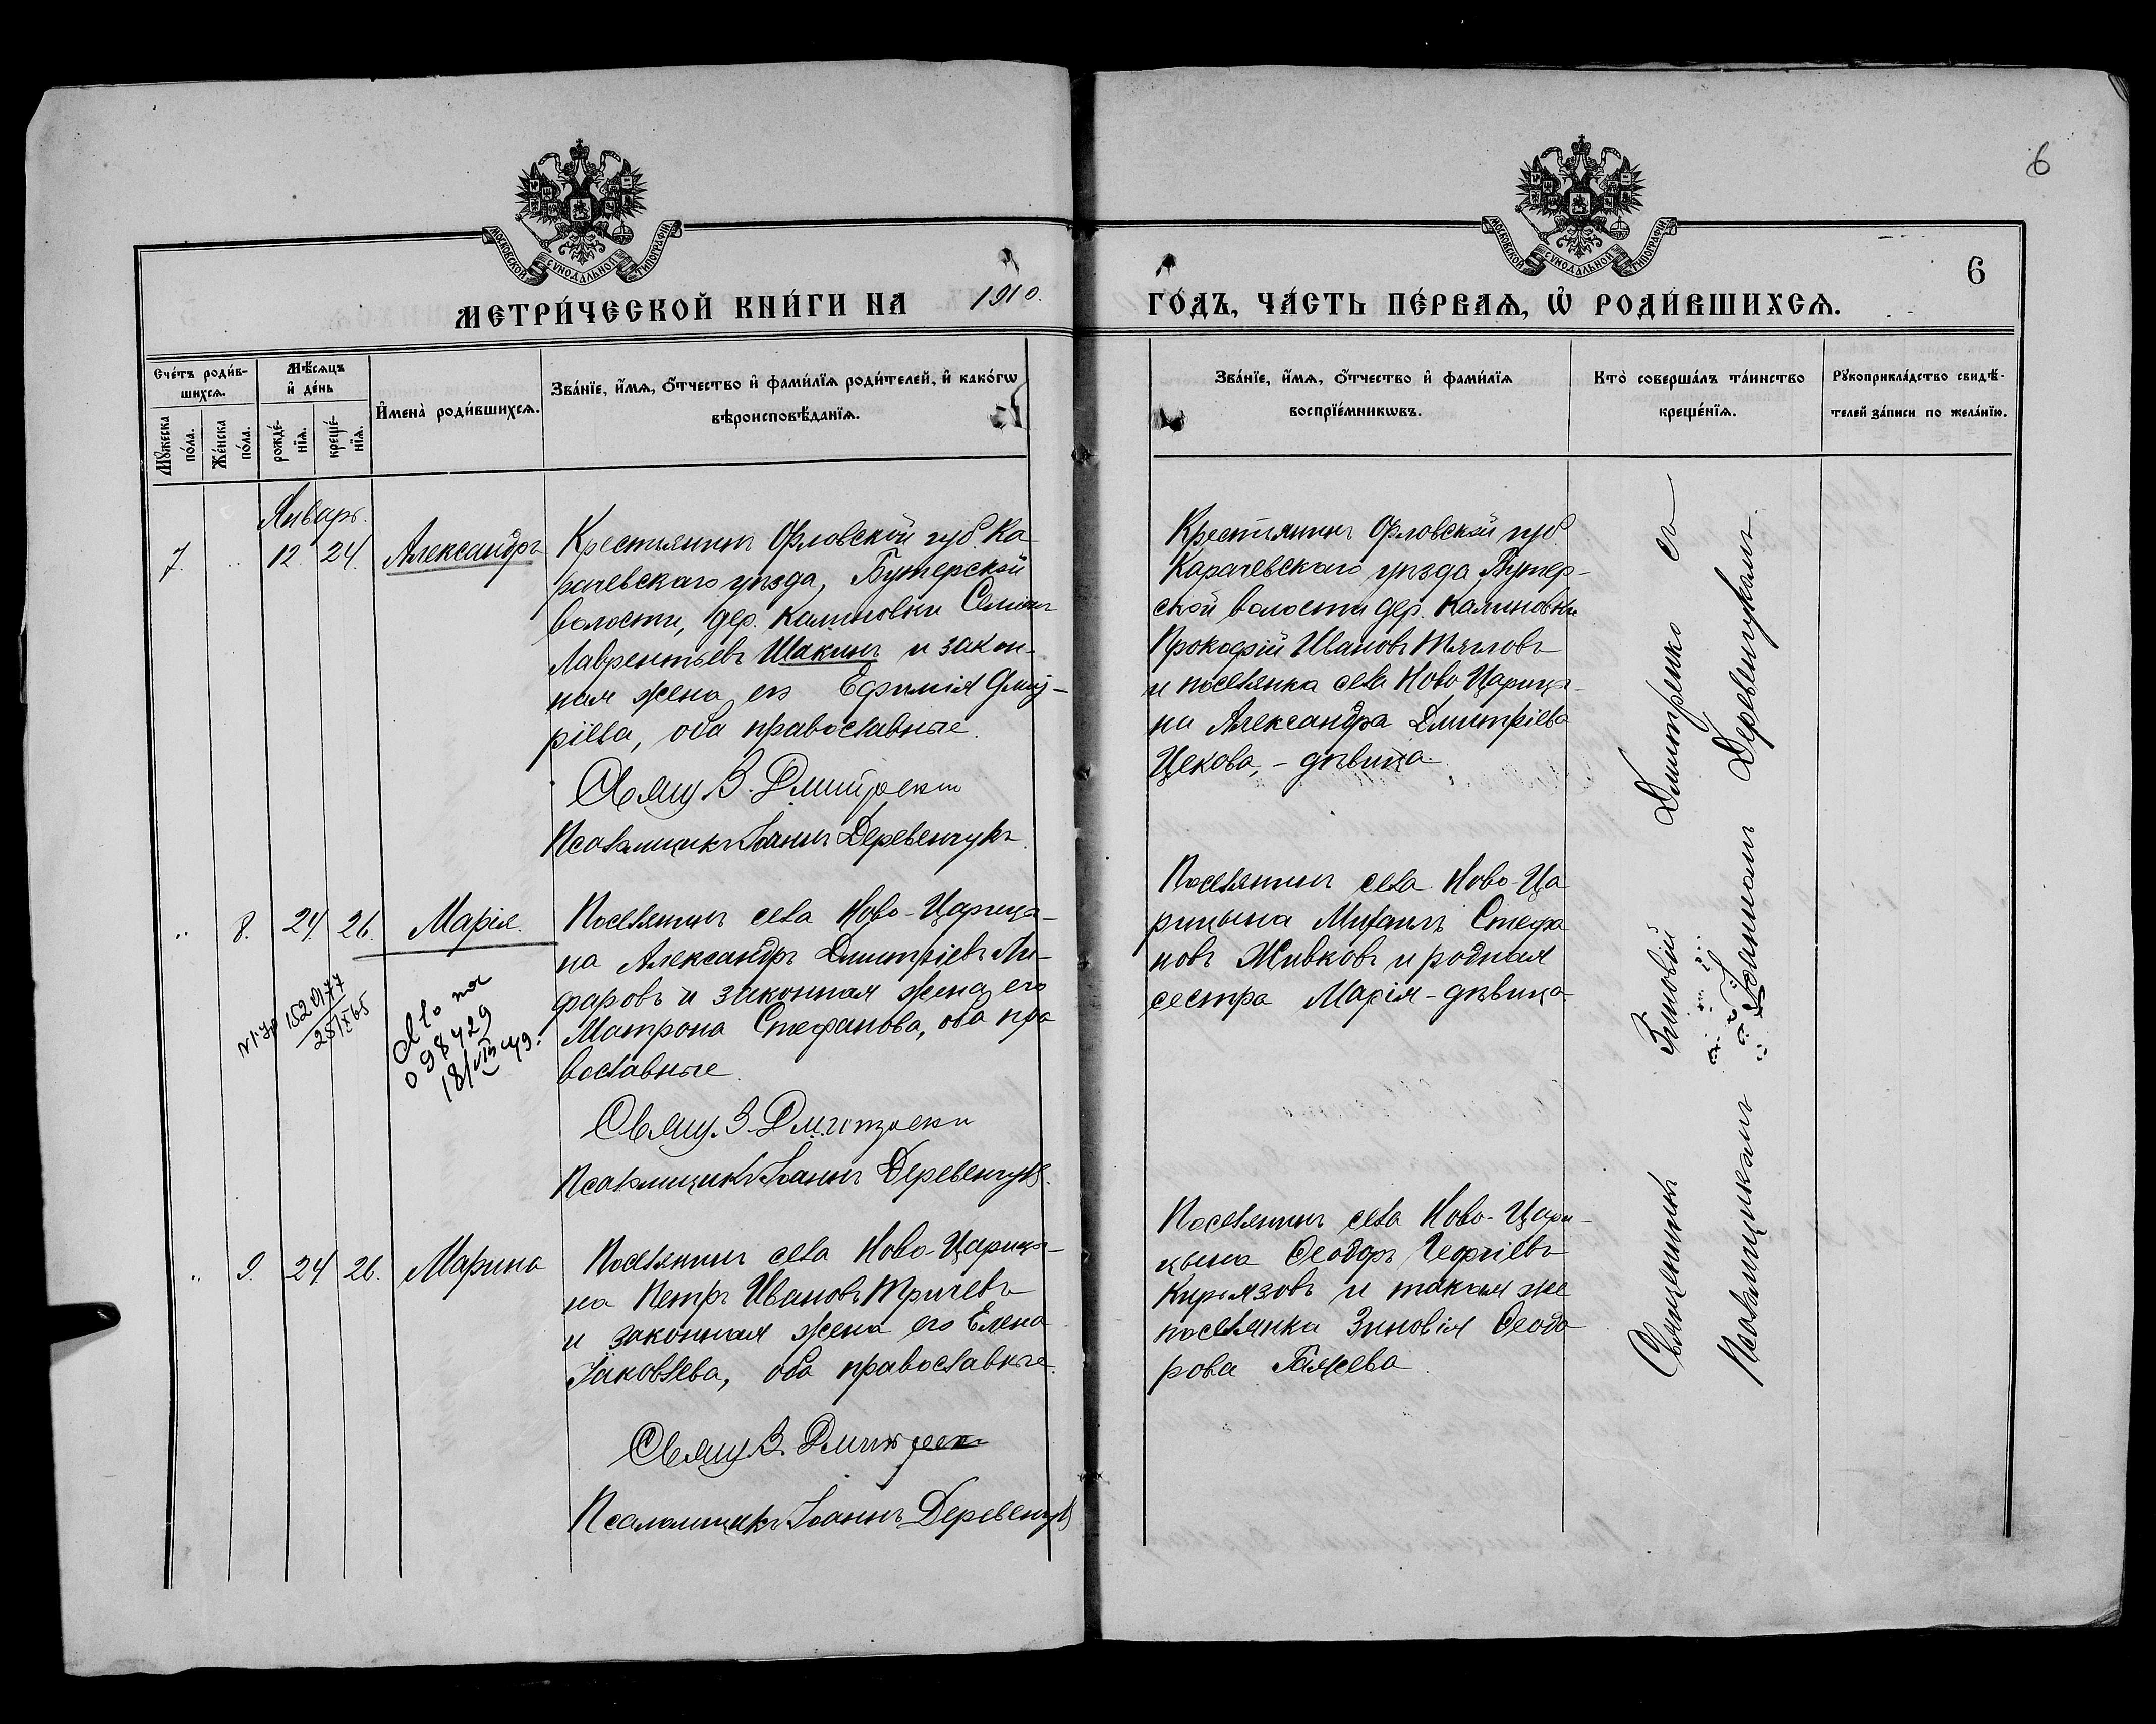 6
МОСКОВСКОЙ СѴНОДАЛЬНОЙ ТИПОГРАФІИ
МОСКОВСКОЙ СѴНОДАЛЬНОЙ ТИПОГРАФІИ
6
МЕТРИ́ЧЕСКОЙ КНИ́ГИ НА 1910. ГО́ДЪ, ЧА́СТЬ ПЕ́РВАѦ, Ѽ РОДИ́ВШИХСѦ.
Сче́тъ роди́в-
шихсѧ.
Мꙋжеска
по́ла.
Же́нска
по́ла.
Мѣ́сѧцъ
и҆ де́нь
рожде́-
нїѧ.
креще́-
нїѧ.
И҆мена̀ роди́вшихсѧ.
Зва́нїе, и҆́мѧ, ѻ҆́тчество и҆ фами́лїѧ роди́телей, и҆ како́гѡ
вѣроисповѣ́данїѧ.
Зва́нїе, и҆́мѧ, ѻ҆́тчество и҆ фами́лїѧ
воспрїе́мникѡвъ.
Кто̀ соверша́лъ та́инство
креще́нїѧ.
Рꙋкоприкла́дство свидѣ́-
телей за́писи по жела́нїю.
Январь.
7. .. 12. 24. Александръ
Крестьянинъ Орловской губ. Ка-
рачевскаго уѣзда, Бутерской
волости, дер. Калиновки Симеонъ
Лаврентьевъ Шакинъ и закон-
ная жена его Ефимія Дмит-
ріева, оба православные.
Свящ. З. Дмитренко
Псаломщикъ Іоаннъ Деревенчукъ.
Крестьянинъ Орловской губ.
Карачевскаго уѣзда Бутер-
ской волости дер. Калиновки
Прокофій Ивановъ Тягловъ
и поселянка села Ново Царицы-
на Александра Дмитріева
Цекова, - дѣвица.
.. 8. 24. 26. Марія.
Поселянинъ села Ново-Царицы-
на Александръ Дмитріевъ Ли-
фаровъ и законная жена его
Матрона Стефанова, оба пра
вославные.
Свящ. З. Дмитренко
Псаломщикъ Іоаннъ Деревенчукъ.
152017
25/IX 65
098429
Поселянинъ села Ново-Ца
рицына Михаилъ Стефа
новъ Живковъ и родная
сестра Марія - дѣвица
.. 9. 24. 26. Марина
Поселянинъ села Ново-Царицы-
на Петръ Ивановъ Тричевъ
и законная жена его Елена
Іаковлева, оба православные.
Свящ. З. Дмитренко
Псаломщикъ Іоаннъ Деревенчукъ
Поселянинъ села Ново-Цари-
цына Ѳеодоръ Георгіевъ
Кирьязовъ и такая же
поселянка Зиновія Ѳеодо
рова
Священникъ Зиновій Дмитренко съ
Псаломщикомъ Іоанномъ Деревенчукомъ.